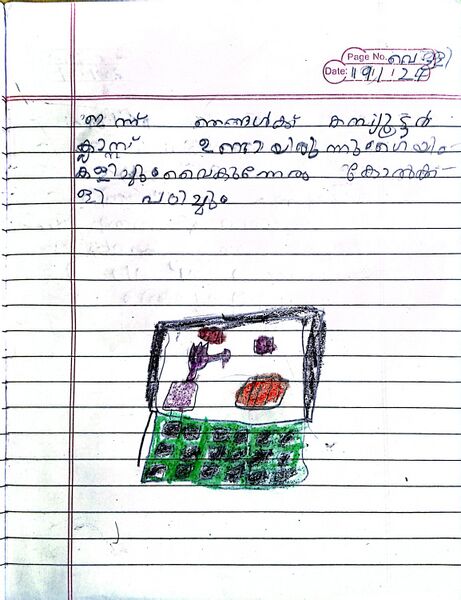 Page No. വെള്ളി
Date: 19/1/24
ഇന്ന് ഞങ്ങൾക്ക് കമ്പ്യൂട്ടർ
ക്ലാസ്സ് ഉണ്ടായിരുന്നു ഗെയിം
കളിച്ചും വൈകുന്നേരം കോൽക്ക-
ളി പഠിച്ചും